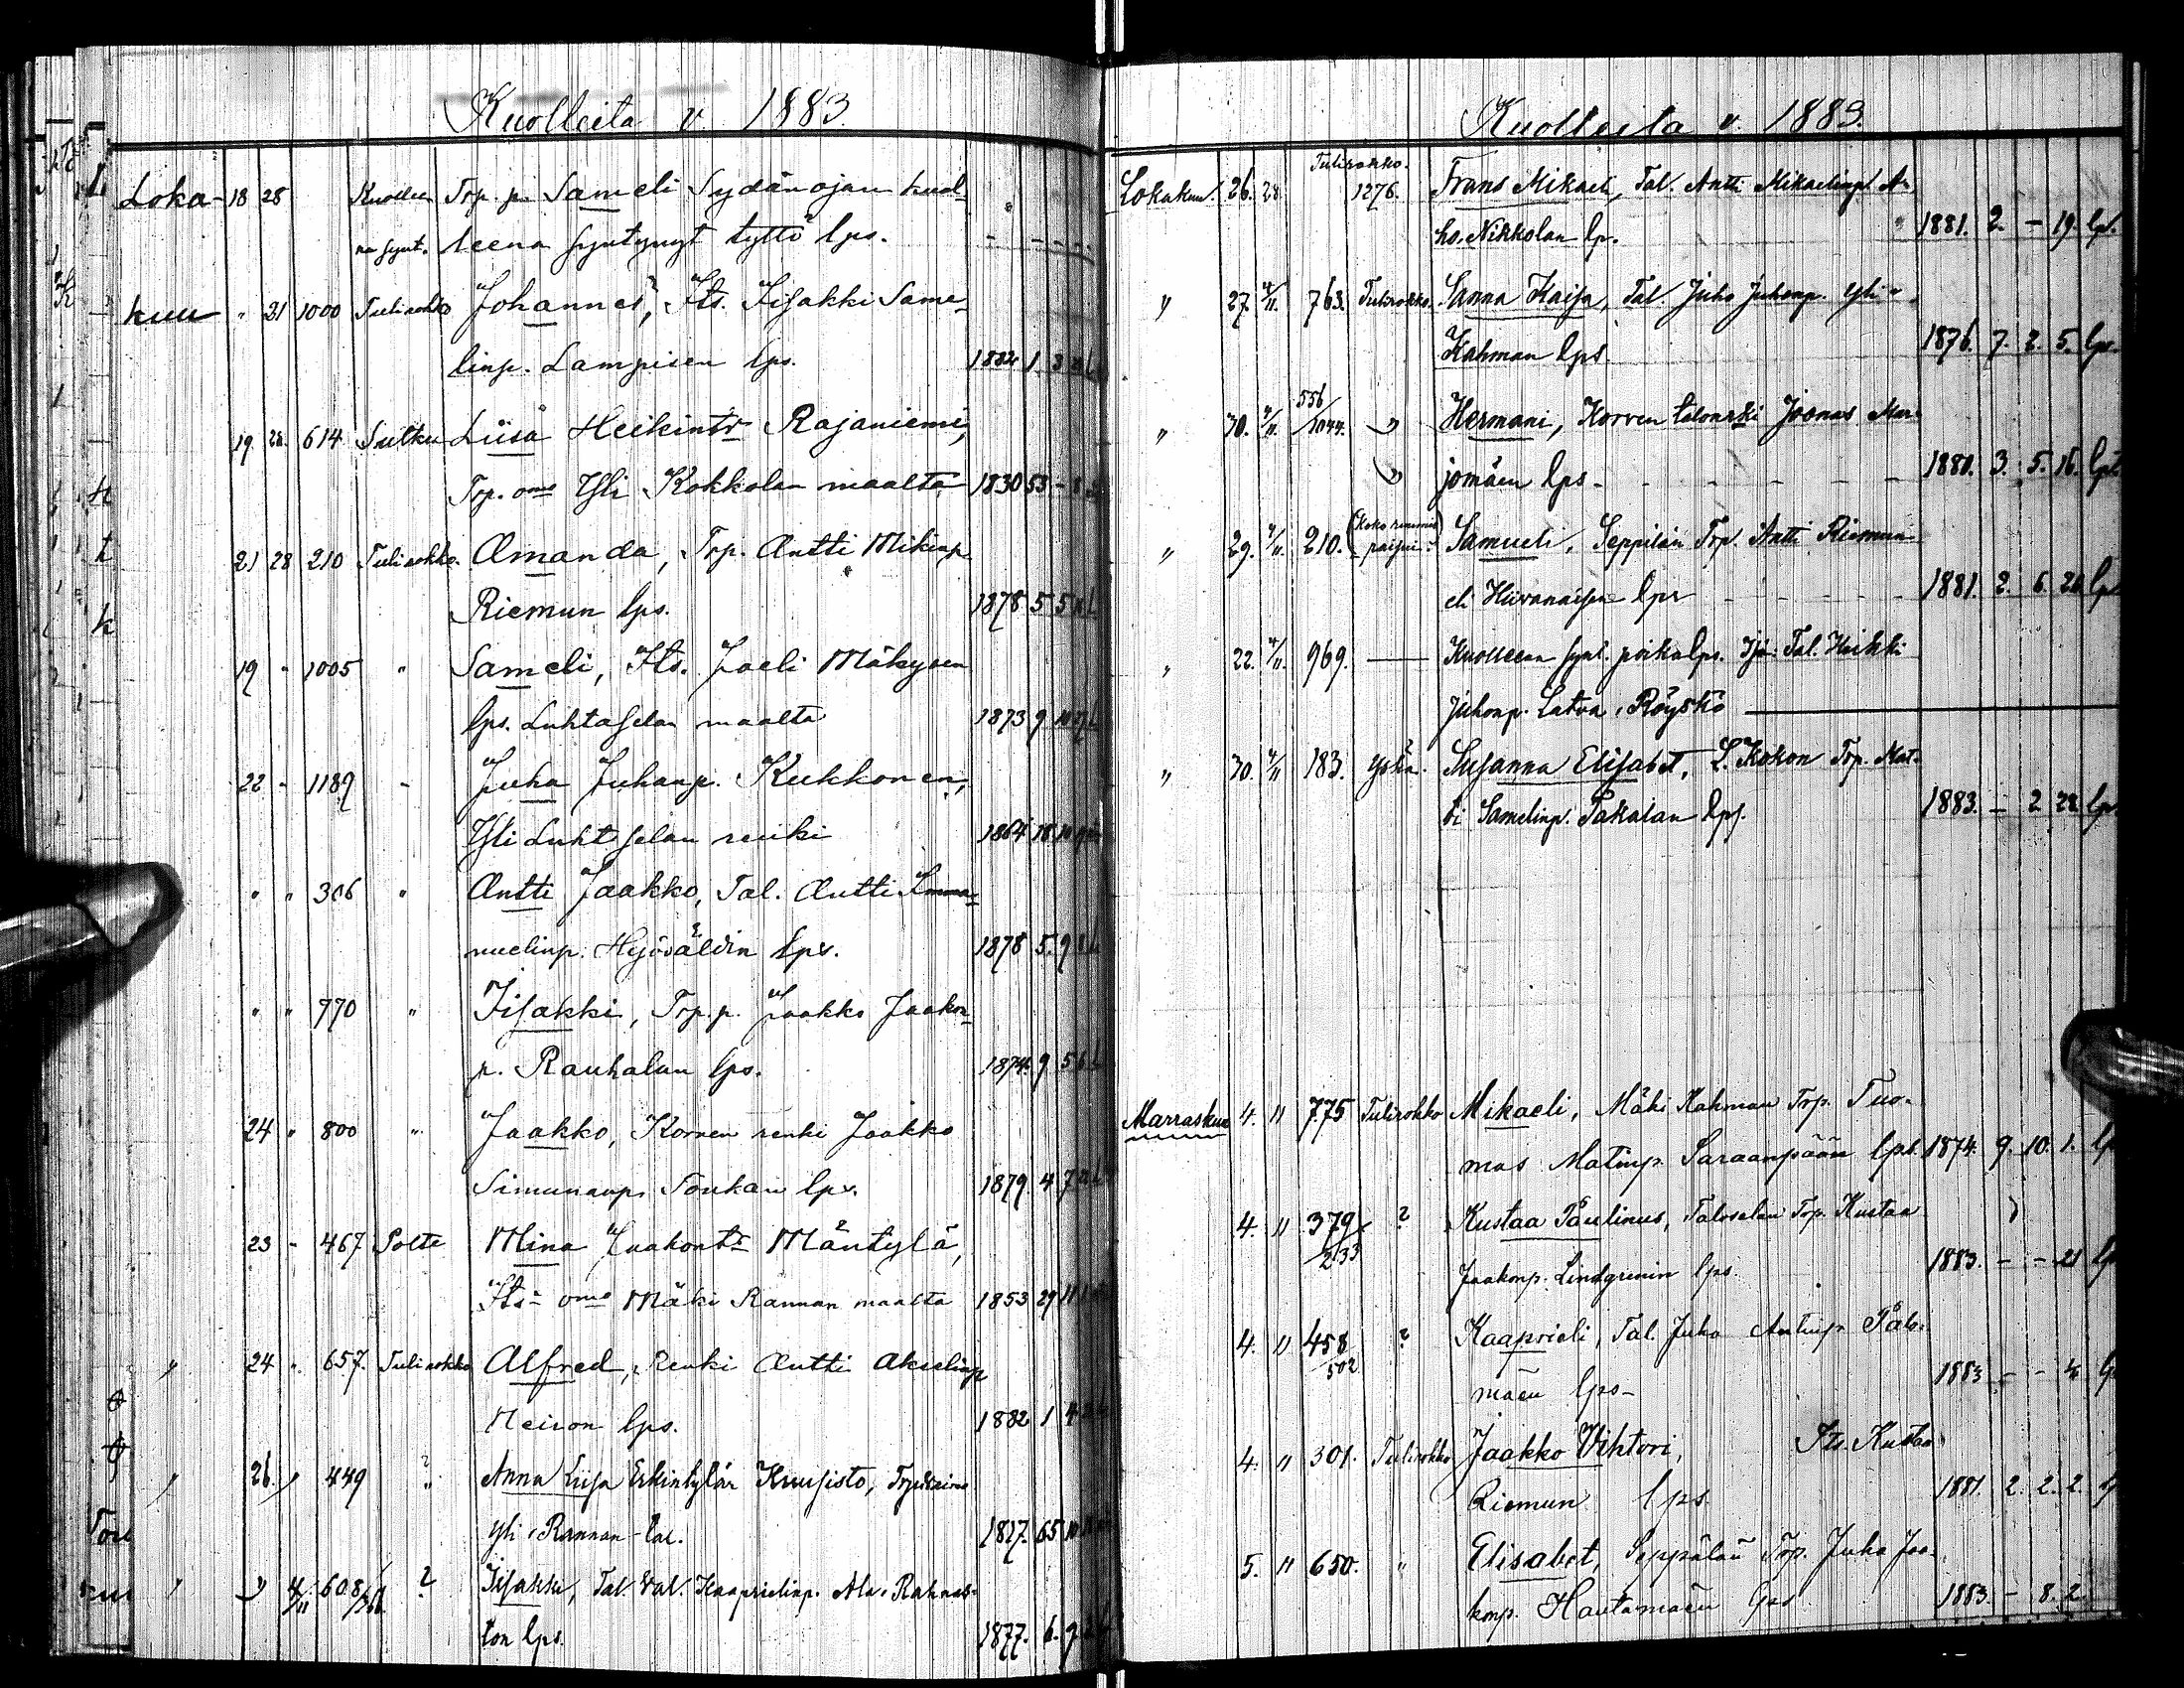 Kuolleita v. 1883.
Loka- 18 28 Kuollee- Trp. p. Sameli Sydänojan kuol-
na synt. leena syntynyt tyttö lps. - - - -
kuu " 21 1000 Tulirokko Johannes, Its. Iisakki Same-
linp. Lampisen lps. 1882 1 3
19. 28. 614 Liisa Heikintr Rajaniemi,
Trp. omo Yli Kokkolan maalta 1830 53 -
21 28 210 Tulirokko. Amanda, Trp. Antti Mikinp.
Riemun lps. 1878 5 5
19 " 1005 " Sameli, Its. Joeli Mäkysen
lps. Luhtaselan maalta 1873 9 10
22 - 1189 - Juha Juhanp. Kukkonen,
Yli Luhtselan renki 1864 18 10
" " 306 " Antti Jaakko, Tal. Antti Imma-
nuelinp. lps. 1878 5 9
" " 770 " Iisakki, Trp. p. Jaakko Jaakon-
p. Rauhalan lps. 1874. 9 5 6
24 " 800 " Jaakko, Korven renki Jaakko
Simunanp. Soukan lps. 1879 4 7
23 - 467 Polte Mina Jaakontr Mäntylä,
Its. omo Mäki Rannan maalta 1853 29 11
" 24 " 657. Tulirokko Alfred, Renki Antti Akselinp
Neiron lps. 1882 1 4
" 26. " 449 " Anna Liisa Kuusisto,
Yli Rannan tal. 1817. 65 10
" " 4/11 608/ ? Iisakki, Tal. Kaaprielinp. Ala-Rahnas-
ton lps. 1877. 6. 9
Kuolleita v. 1883.
Lokakuu. 26. 28. Tulirokko. 1276. Frans Mikaeli, Tal. Antti Mikaelinp. A-
ho. Nikkolan lp. 1881. 2. - 19. lps.
" 27. 4/11. 763. Tulirokko. Sanna Kaisa, Tal. Juho Juhonp. Yli-
Kahman lps. 1876. 7. 2. 5. lps.
" 30. 4/11. 556/1044. " Hermani, Korven talonrki Joonas Mar-
" jomäen lps - - - - - 1880. 3. 5. 16. lps
" 29. 4/11. 210. Samueli, Seppilän Trp. Antti Riemun
eli Hiivanaisen lps - - - - 1881. 2. 6. 26 lps
" 22. 4/11. 969. — Kuolleena synt. poikalps. Isä: Tal. Heikki
Juhonp. Latva-Röyskö —
" 30. 4/11 183. Yskä. Susanna Elisabet, L. Kokon Trp. Mat-
ti Samelinp. Takalan lps. 1883. - 2 22 lps.
Marraskuu 4. 11 775 Tulirokko Mikaeli, Mäki Kahman Trp. Tuo-
mas Matinp. Saraanpään lps. 1874. 9. 10. 1. lps
4. 11 379/233 ? Kustaa Paulinus, Talosalan Trp. Kustaa
Jaakonp. Lindgrenin lps. 1883. - - 21 lps
4. 11 458/502 ? Kaaprieli, Tal. Juho Antinp. Palo-
mäen lps - 1883 - - 4 lps
4. 11 301. Tulirokko Jaakko Vihtori, Its. Kustaa
Riemun lps 1881. 2. 2. 2.
5. 11 650. " Elisabet, Seppälän Trp. Juho Jaa-
konp. Hautamäen lps 1883. - 8. 2